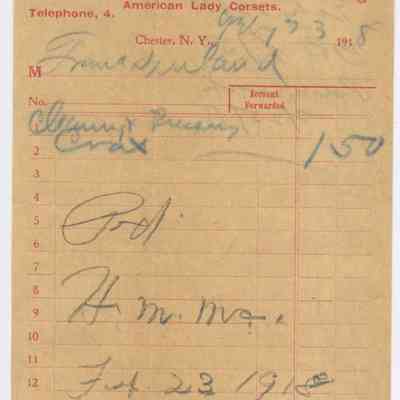 American Lady Corsets.
Telephone, 4.
Chester, N. Y., 23 1918
M
Account Forwarded
No.
Cleaning & Pressing
2 Coat 1 50
3
4
5 Pd.
6
7
8 H. M.
9
10
11
12 Feb 23 1918